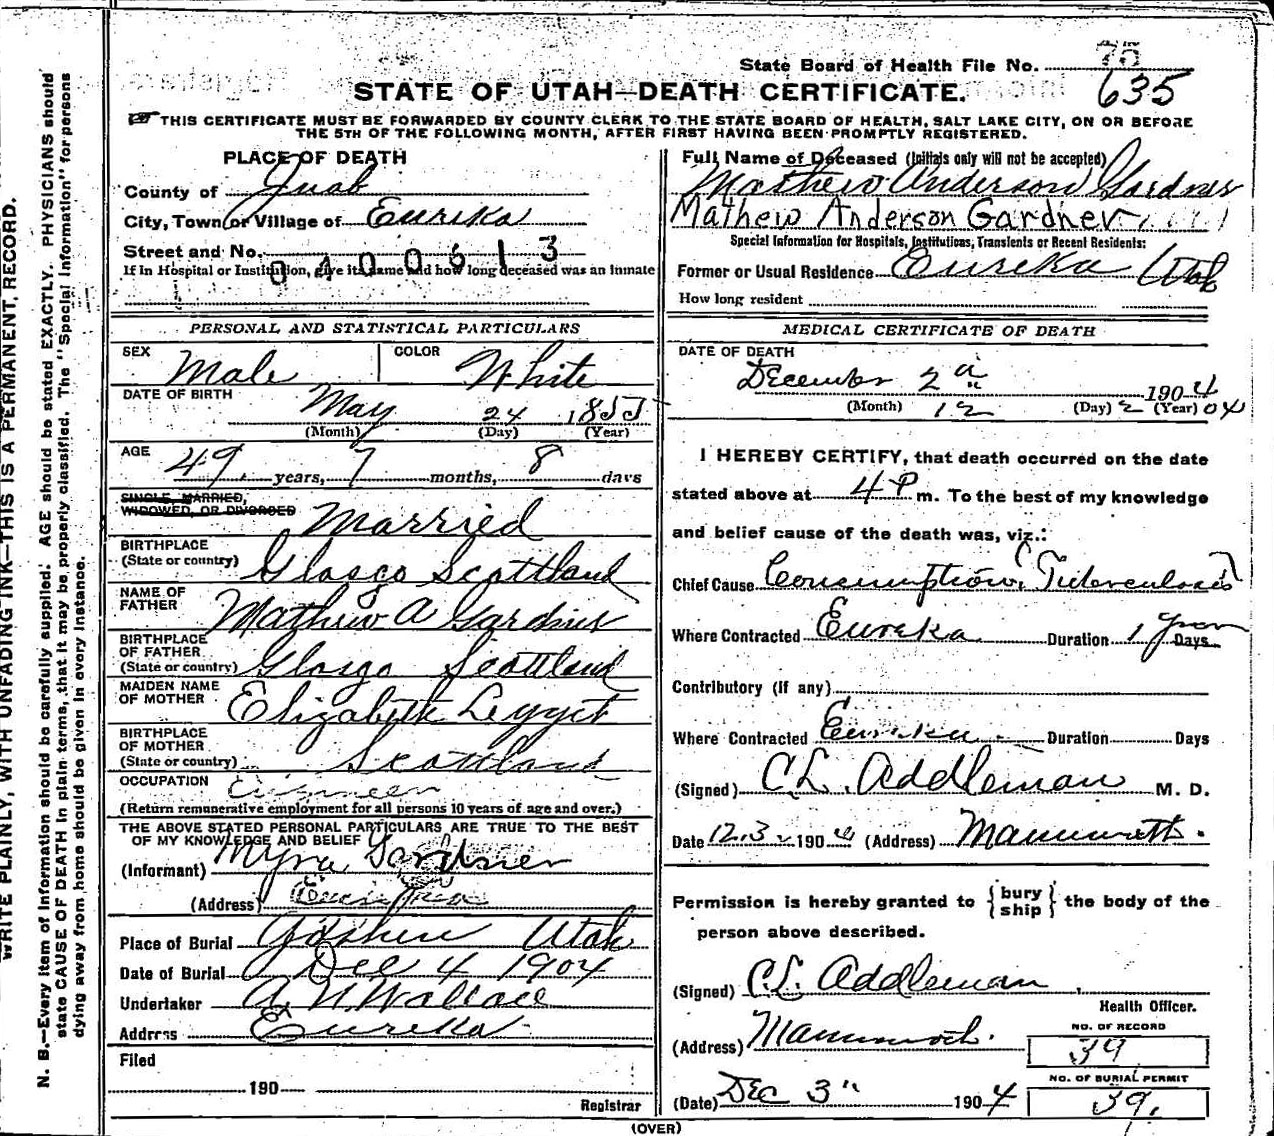 State Board of Health File No. 75
635
STATE OF UTAH—DEATH CERTIFICATE.
THIS CERTIFICATE MUST BE FORWARDED BY COUNTY CLERK TO THE STATE BOARD OF HEALTH, SALT LAKE CITY, ON OR BEFORE
THE 5TH OF THE FOLLOWING MONTH, AFTER FIRST HAVING BEEN PROMPTLY REGISTERED.
WRITE PLAINLY, WITH UNFADING INK—THIS IS A PERMANENT RECORD.
N. B.—Every item of Information should be carefully supplied. AGE should be stated EXACTLY. PHYSICIANS should
state CAUSE OF DEATH in plain terms, that it may be properly classified. The "Special Information" for persons
dying away from home should be given in every instance.
PLACE OF DEATH
County of Juab
City, Town or Village of Eureka
Street and No.
0400613
If In Hospital or Institution, give its name and how long deceased was an inmate
PERSONAL AND STATISTICAL PARTICULARS
SEX Male COLOR White
DATE OF BIRTH May 24 1855
(Month) (Day) (Year)
AGE 49 years, 7 months, 8 days
SINGLE, MARRIED,
WIDOWED, OR DIVORCED Married
BIRTHPLACE
(State or country) Glasgo Scottland
NAME OF
FATHER Mathew A Gardner
BIRTHPLACE
OF FATHER
(State or country) Glasgo Scottland
MAIDEN NAME
OF MOTHER Elizabeth Leggit
BIRTHPLACE
OF MOTHER
(State or country) Scottland
OCCUPATION Engineer
(Return remunerative employment for all persons 10 years of age and over.)
THE ABOVE STATED PERSONAL PARTICULARS ARE TRUE TO THE BEST
OF MY KNOWLEDGE AND BELIEF
(Informant) Myra Gardner
(Address) Eureka
Place of Burial Goshen Utah
Date of Burial Dec 4 1904
Undertaker A. N. Wallace
Address Eureka
Filed
190
Registrar
Full Name of Deceased (Initials only will not be accepted)
Mathew Anderson Gardner
Mathew Anderson Gardner
Special Information for Hospitals, Institutions, Transients or Recent Residents:
Former or Usual Residence Eureka Utah
How long resident
MEDICAL CERTIFICATE OF DEATH
DATE OF DEATH
December 2d 1904
(Month) 12 (Day) 2 (Year) 04
I HEREBY CERTIFY, that death occurred on the date
stated above at 4 P m. To the best of my knowledge
and belief cause of the death was, viz.:
Chief Cause Consumption (Tuberculosis)
Where Contracted Eureka Duration 1 year Days
Contributory (if any)
Where Contracted Eureka Duration Days
(Signed) C. L. Addleman M. D.
Date 12.3 1904 (Address) Mammoth.
Permission is hereby granted to { bury ship } the body of the
person above described.
(Signed) C. L. Addleman
Health Officer.
(Address) Mammoth.
NO. OF RECORD
39
(Date) Dec 3" 1904
NO. OF BURIAL PERMIT
39.
(OVER)